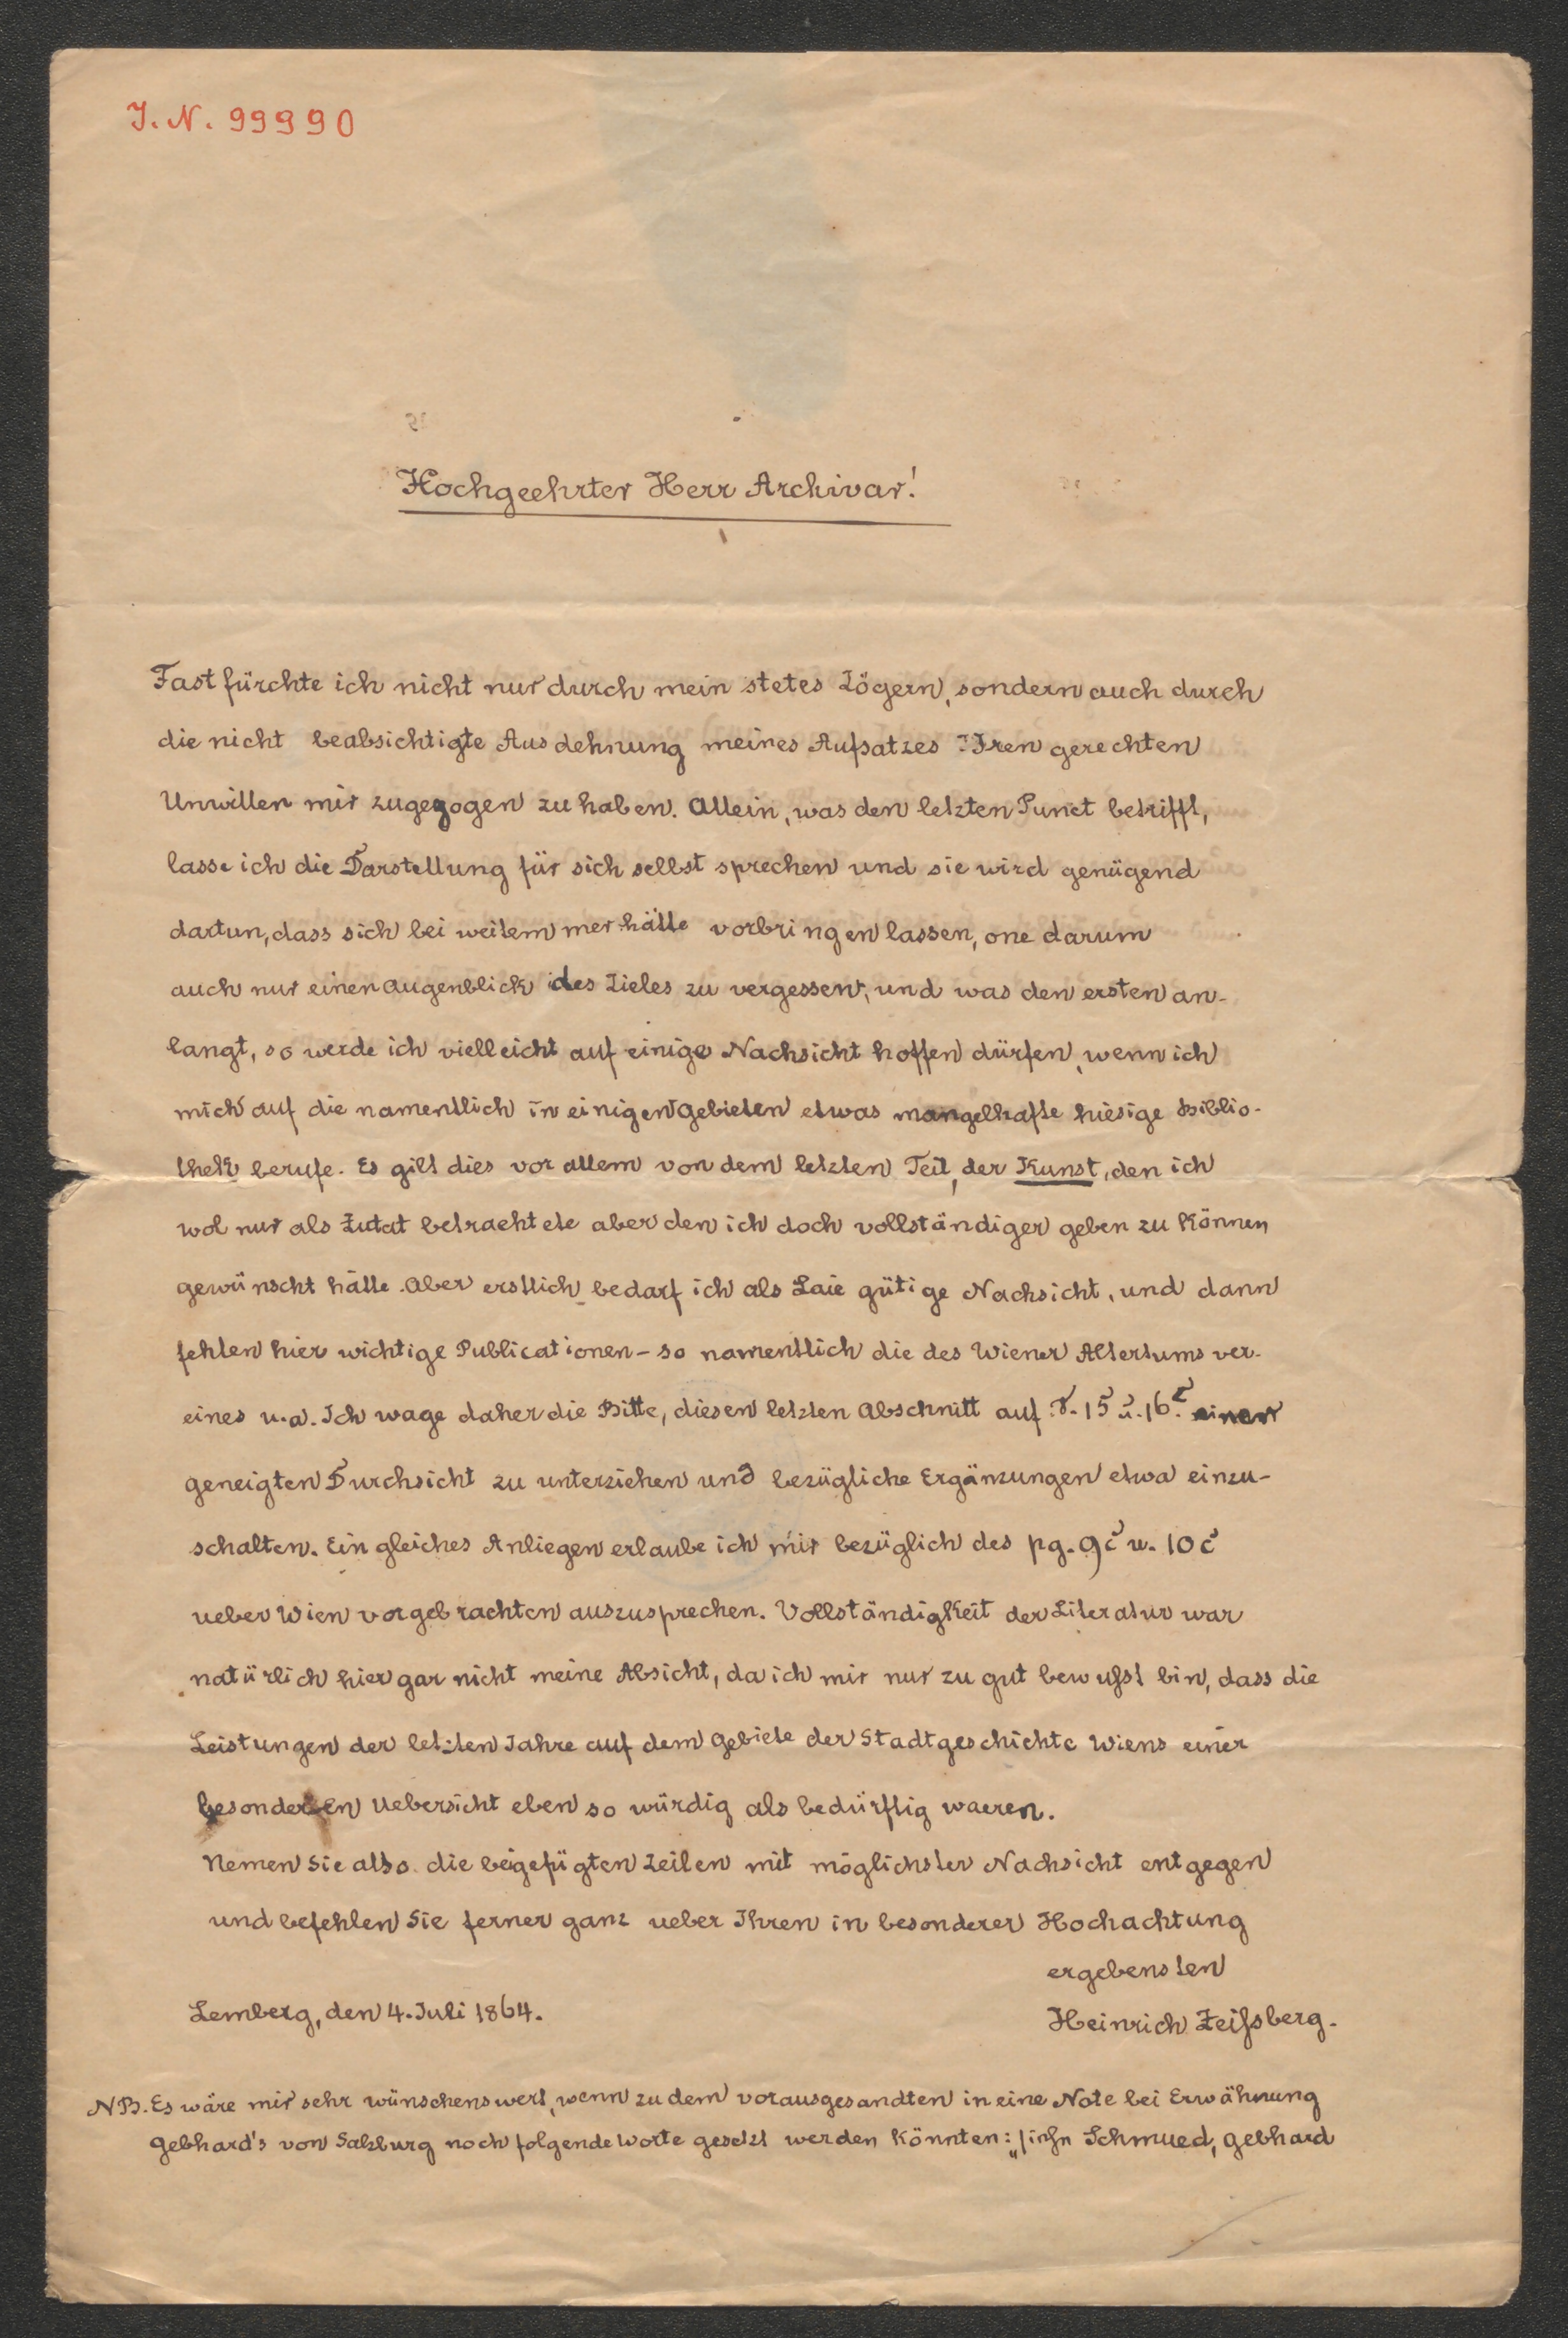 J. N. 99990
Hochgeehrter Herr Archivar!
Fast fürchte ich nicht nur durch mein stetes Zögern, sondern auch durch
die nicht beabsichtigte Ausdehnung meines Aufsatzes Iren gerechten
Unwillen mir zugezogen zu haben. Allein, was den letzten Punct betrifft,
lasse ich die Darstellung für sich selbst sprechen und sie wird genügend
dartun, dass sich bei weitem mer hätte vorbringen lassen, one darum
auch nur einen Augenblick des Zieles zu vergessen, und was den ersten an-
langt, so werde ich vielleicht auf einige Nachsicht hoffen dürfen, wenn ich
mich auf die namentlich in einigen Gebieten etwas mangelhafte hiesige Biblio-
thek berufe. Es gilt dies vor allem von dem letzten Teil, der Kunst, den ich
wol nur als Zutat betrachtete aber den ich doch vollständiger geben zu können
gewünscht hätte. Aber erstlich bedarf ich als Laie gütige Nachsicht, und dann
fehlen hier wichtige Publicationen – so namentlich die des Wiener Altertums ver-
eines u. a. Ich wage daher die Bitte, diesen letzten Abschnitt auf 15 u. 16 einer
geneigten Durchsicht zu unterziehen und bezügliche Ergänzungen etwa einzu-
schalten. Ein gleiches Anliegen erlaube ich mir bezüglich des pg. 9 c u. 10 c
ueber Wien vorgebrachten auszusprechen. Vollständigkeit der Literatur war
natürlich hier gar nicht meine Absicht, da ich mir nur zu gut bewußt bin, dass die
Leistungen der letzten Jahre auf dem Gebiete der Stadtgeschichte Wiens einer
besonderen Uebersicht eben so würdig als bedürftig waeren.
Nemen Sie also die beigefügten Zeilen mit möglichster Nachsicht entgegen
und befehlen Sie ferner ganz ueber Ihren in besonderer Hochachtung
ergebensten
Lemberg, den 4. Juli 1864.
Heinrich Zeißberg.
NB. Es wäre mir sehr wünschenswert, wenn zu dem vorausgesandten in eine Note bei Erwähnung
Gebhard's von Salzburg noch folgende Worte gesetzt werden könnten: „ Schmued, Gebhard